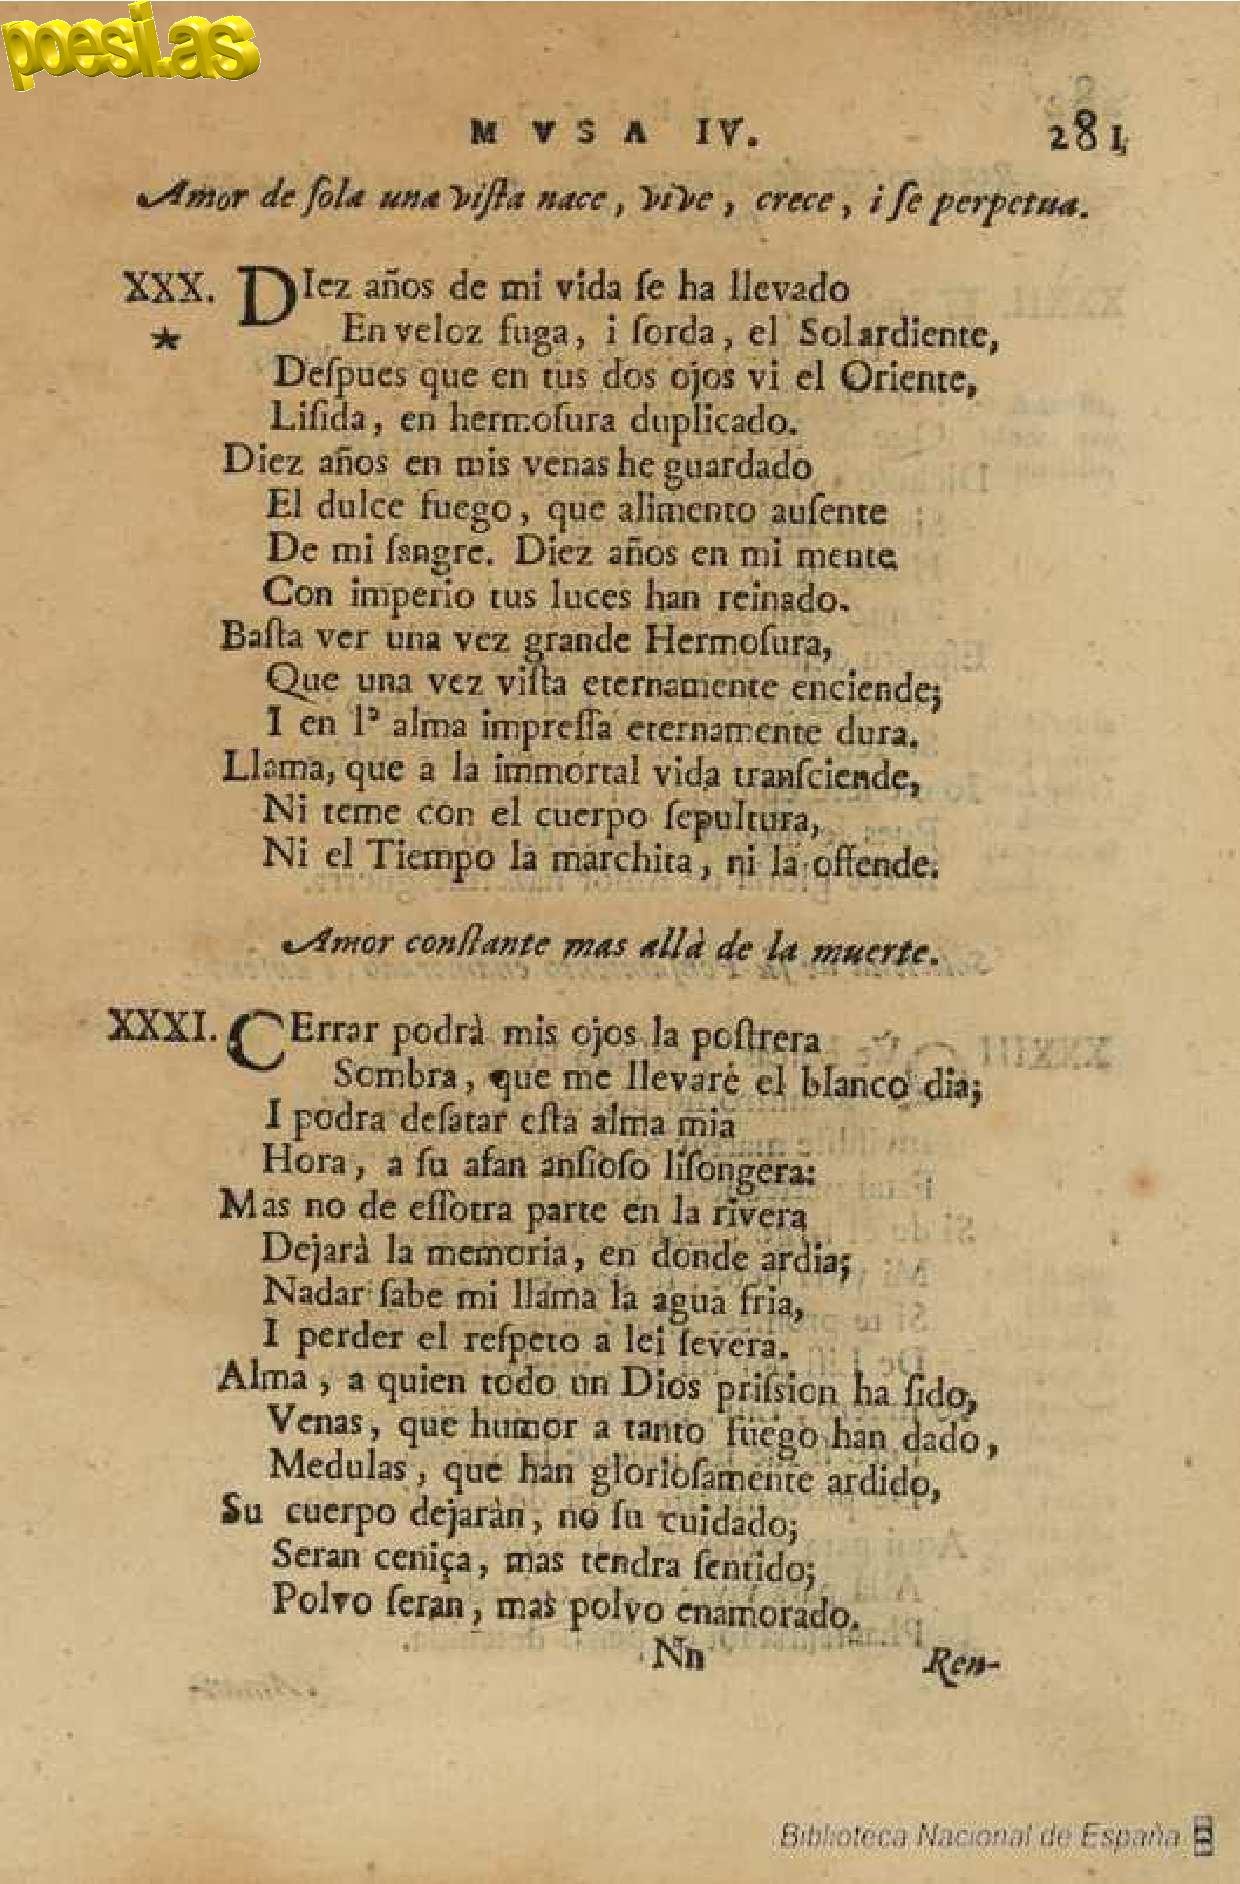 poesi.as
MVSA IV. 281
Amor de ſola una viſta nace, vive, crece, i ſe perpetua.
XXX. DIez años de mi vida ſe ha llevado
★ En veloz fuga, i ſorda, el Sol ardiente,
Deſpues que en tus dos ojos vi el Oriente,
Liſida, en hermoſura duplicado.
Diez años en mis venas he guardado
El dulce fuego, que alimento auſente
De mi ſangre. Diez años en mi mente
Con imperio tus luces han reinado.
Baſta ver una vez grande Hermoſura,
Que una vez viſta eternamente enciende;
I en lª alma impreſſa eternamente dura.
Llama, que a la immortal vida tranſciende,
Ni teme con el cuerpo ſepultura,
Ni el Tiempo la marchita, ni la offende.
Amor conſtante mas allà de la muerte.
XXXI. CErrar podrà mis ojos la poſtrera
Sombra, que me llevarè el blanco dia;
I podra deſatar eſta alma mia
Hora, a ſu afan anſioſo liſongera:
Mas no de eſſotra parte en la rivera
Dejarà la memoria, en donde ardia;
Nadar ſabe mi llama la agua fria,
I perder el reſpeto a lei ſevera.
Alma, a quien todo un Dios priſsion ha ſido,
Venas, que humor a tanto fuego han dado,
Medulas, que han glorioſamente ardido,
Su cuerpo dejaràn, no ſu cuidado;
Seran ceniça, mas tendra ſentido;
Polvo ſeran, mas polvo enamorado.
Nn Ren-
Biblioteca Nacional de España